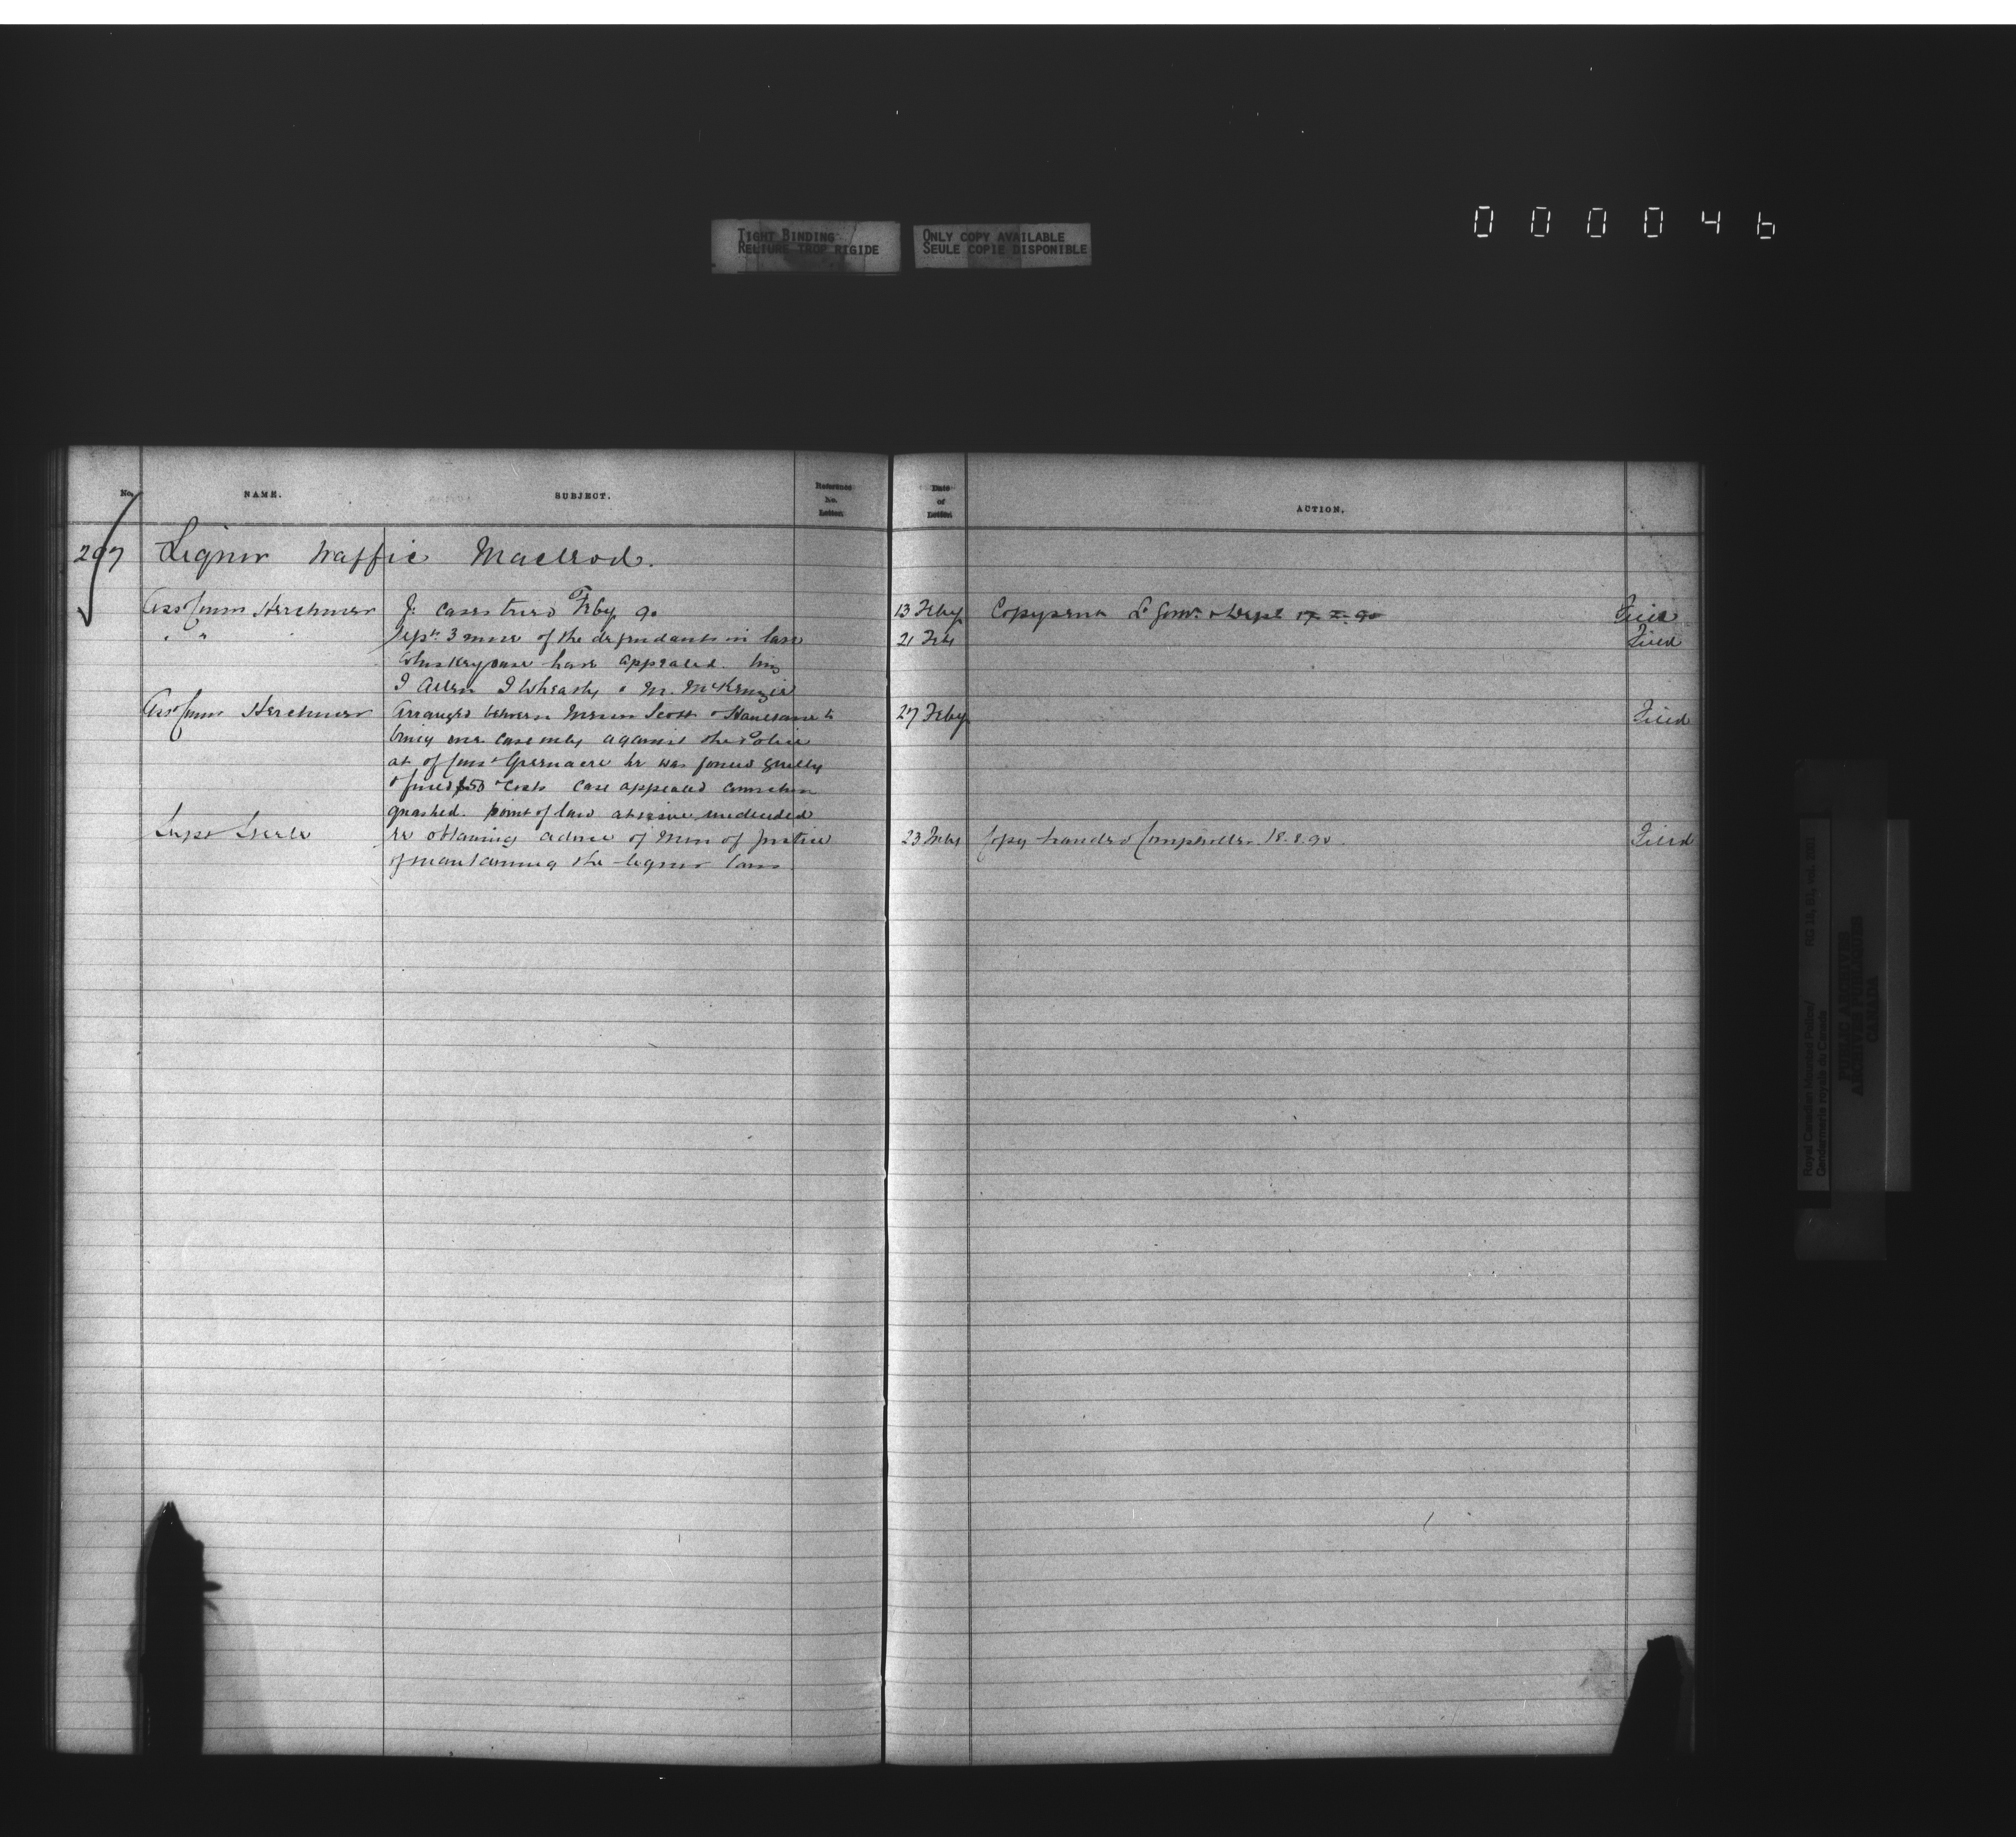 000046
TIGHT BINDING
RELIURE TROP RIGIDE
ONLY COPY AVAILABLE
SEULE COPIE DISPONIBLE
No. NAME. SUBJECT. Reference No. Letter. Date of Letter. ACTION.
297 Liquor traffic Macleod.
Asst Comm Herchmer Feby 90 13 Feby Copy sent Lt Govr & Dept 17.2.90 Filed
" " 3 more of the defendants in late 21 Feb Filed
Whiskey case have appealed.
J Allen & M. McKenzie
Asst Comm Herchmer Arranged between Messrs Scott & Haultain to 27 Feby Filed
bring one case only against the Police
of Const Greenacre he was found guilty
& fined $50 & costs case appealed conviction
quashed. Point of law at issue undecided
Supt Steele re obtaining advice of Min of Justice 23 Copy handed Comptroller 18.8.90. Filed
of maintaining the liquor laws
Royal Canadian Mounted Police/
Gendarmerie royale du Canada
RG 18, B1, vol.
PUBLIC ARCHIVES
ARCHIVES PUBLIQUES
CANADA